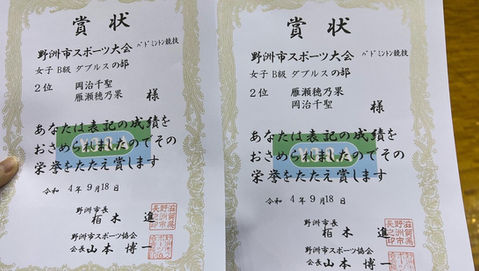 賞状
野洲市スポーツ大会 バドミントン競技
女子B級 ダブルスの部
2位 岡治千聖
雁瀬穂乃果 様
あなたは表記の成績を
おさめられましたのでその
栄誉をたたえ賞します
令和 4年9月18日
野洲市長
栢木 進
野洲市スポーツ協会
会長 山本 博一
賞状
野洲市スポーツ大会 バドミントン競技
女子B級 ダブルスの部
2位 岡治千聖
雁瀬穂乃果 様
あなたは表記の成績を
おさめられましたのでその
栄誉をたたえ賞します
令和 4年9月18日
野洲市長
栢木 進
野洲市スポーツ協会
会長 山本 博一